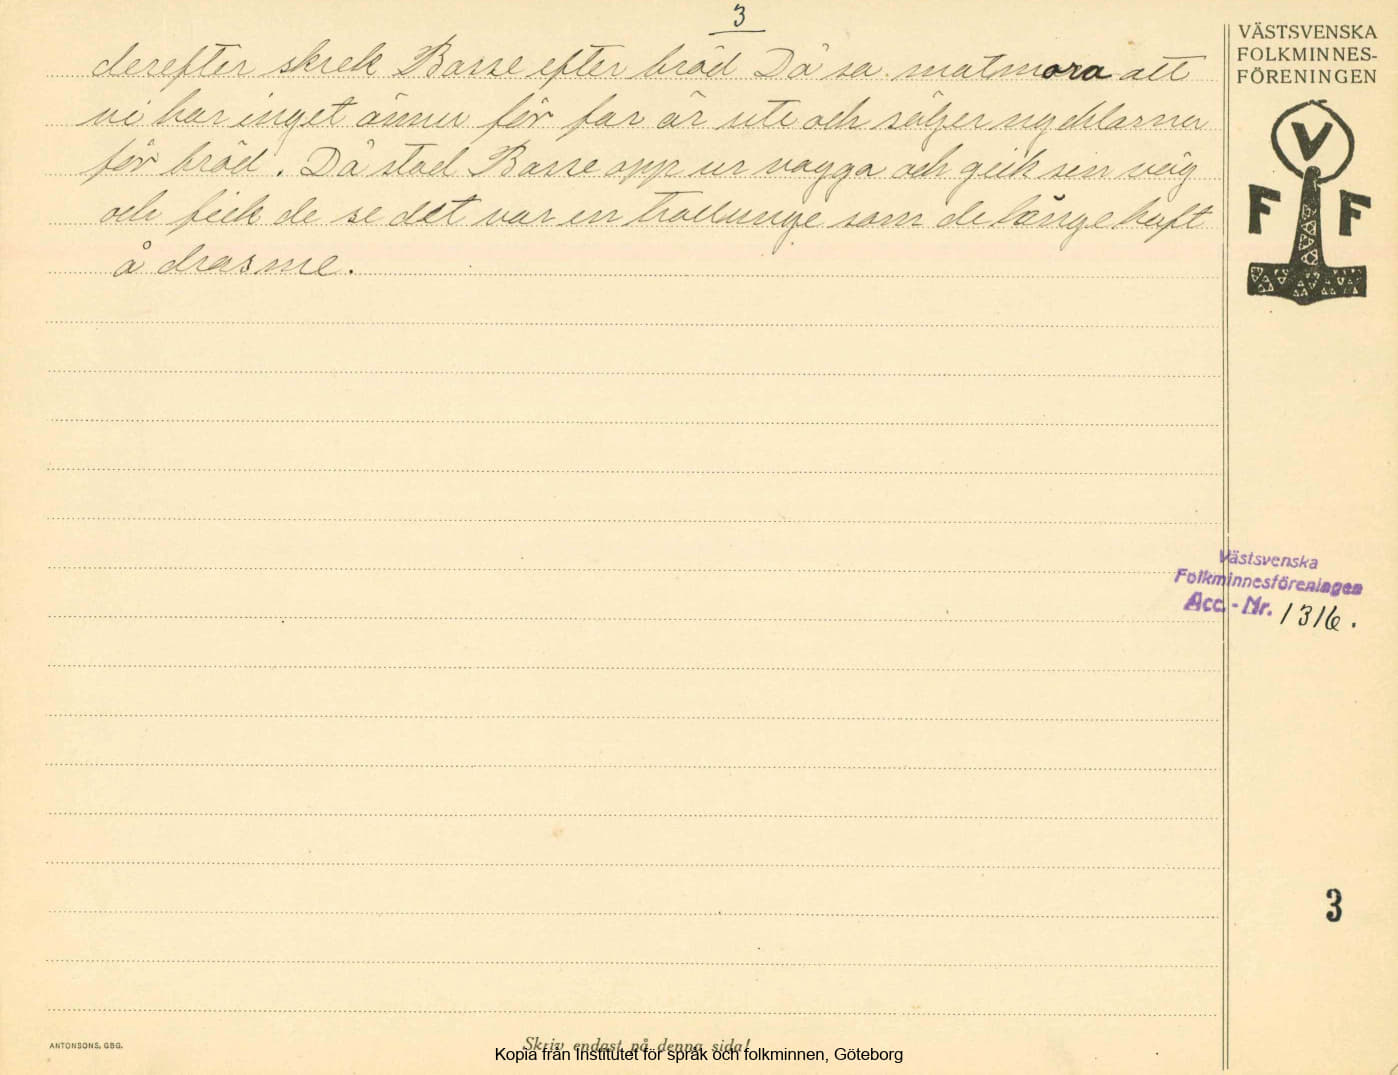 3
derefter skrek Basse efter bröd Då sa matmora att
vi har inget ännu för far är ute och säljer nycklarna
för bröd. Då stod Basse opp ur vagga och gick sin väg
och fick de se det var en trollunge som de länge haft
å dras me.
VÄSTSVENSKA
FOLKMINNES-
FÖRENINGEN
V
F F
Västsvenska
Folkminnesföreningen
Acc.-Nr. 1316.
3
ANTONSONS, GBG.
Skriv endast på denna sida!
Kopia från Institutet för språk och folkminnen, Göteborg